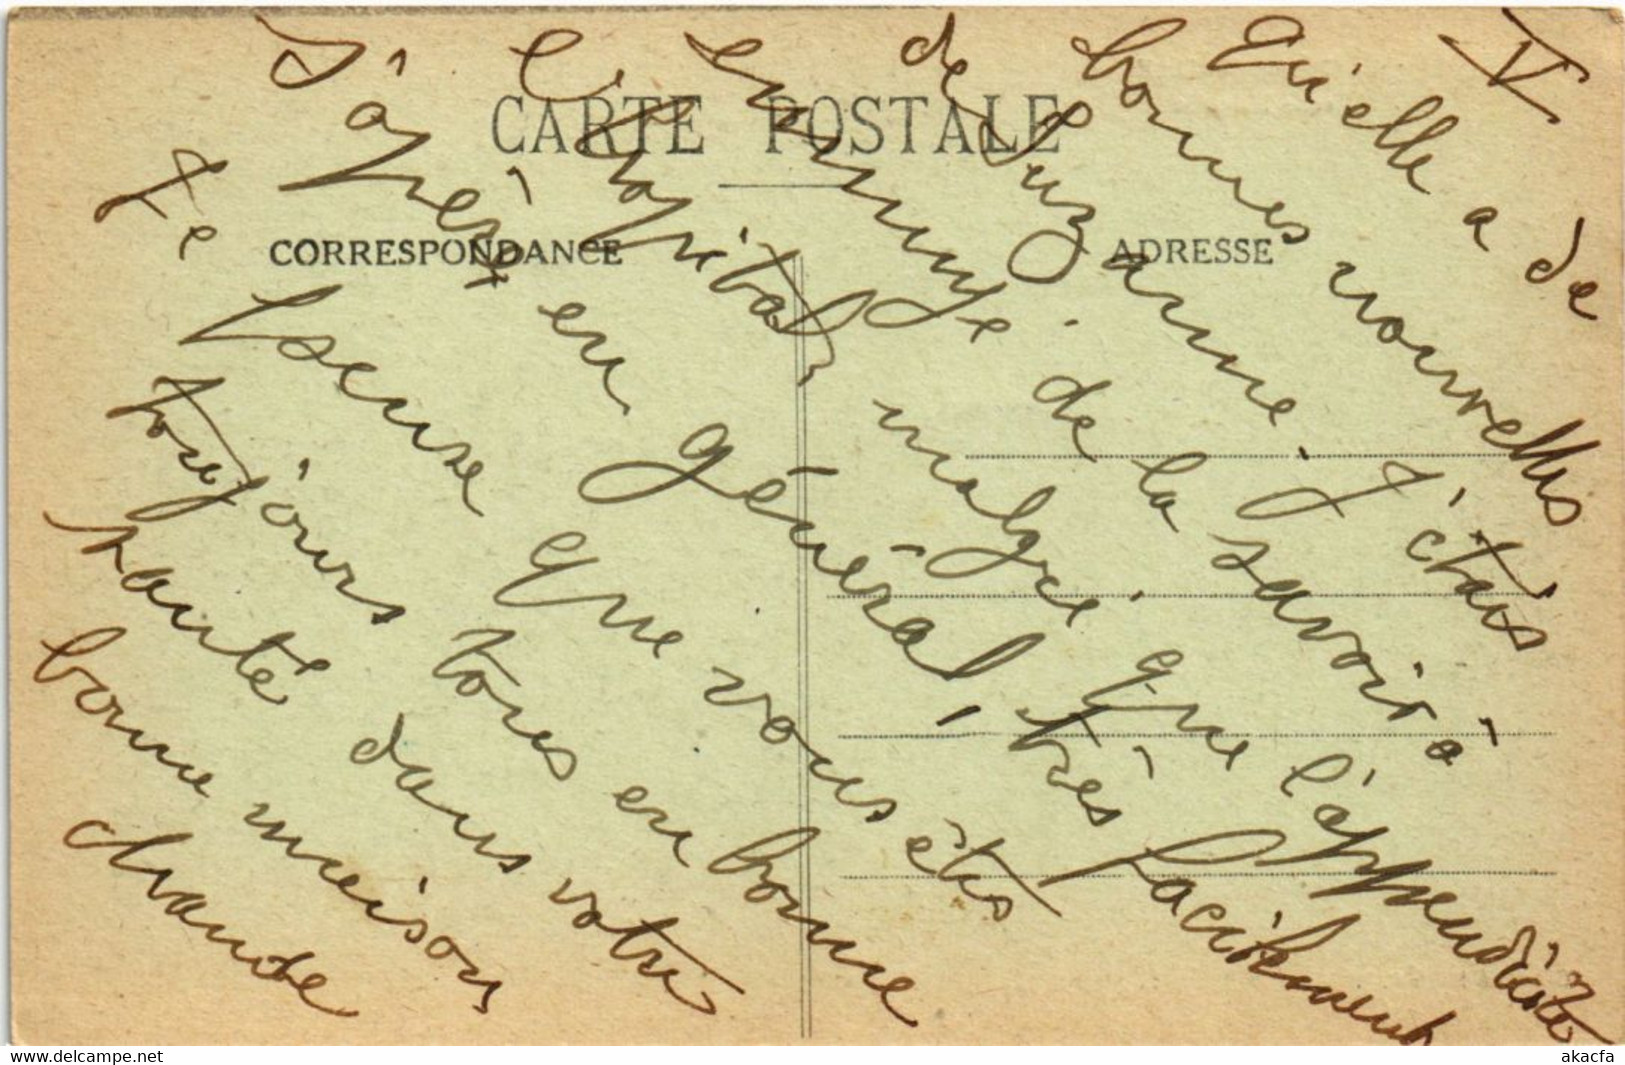 V
Qu'elle a de
bonnes nouvelles
de Suzanne. J'étais
ennuyé de la savoir à
l'hôpital, malgré que l'appendicite
s'opère en général, très facilement
Je pense que vous êtes
toujours tous en bonne
santé dans votre
bonne maison
chaude
CARTE POSTALE
CORRESPONDANCE
ADRESSE
www.delcampe.net
akacfa